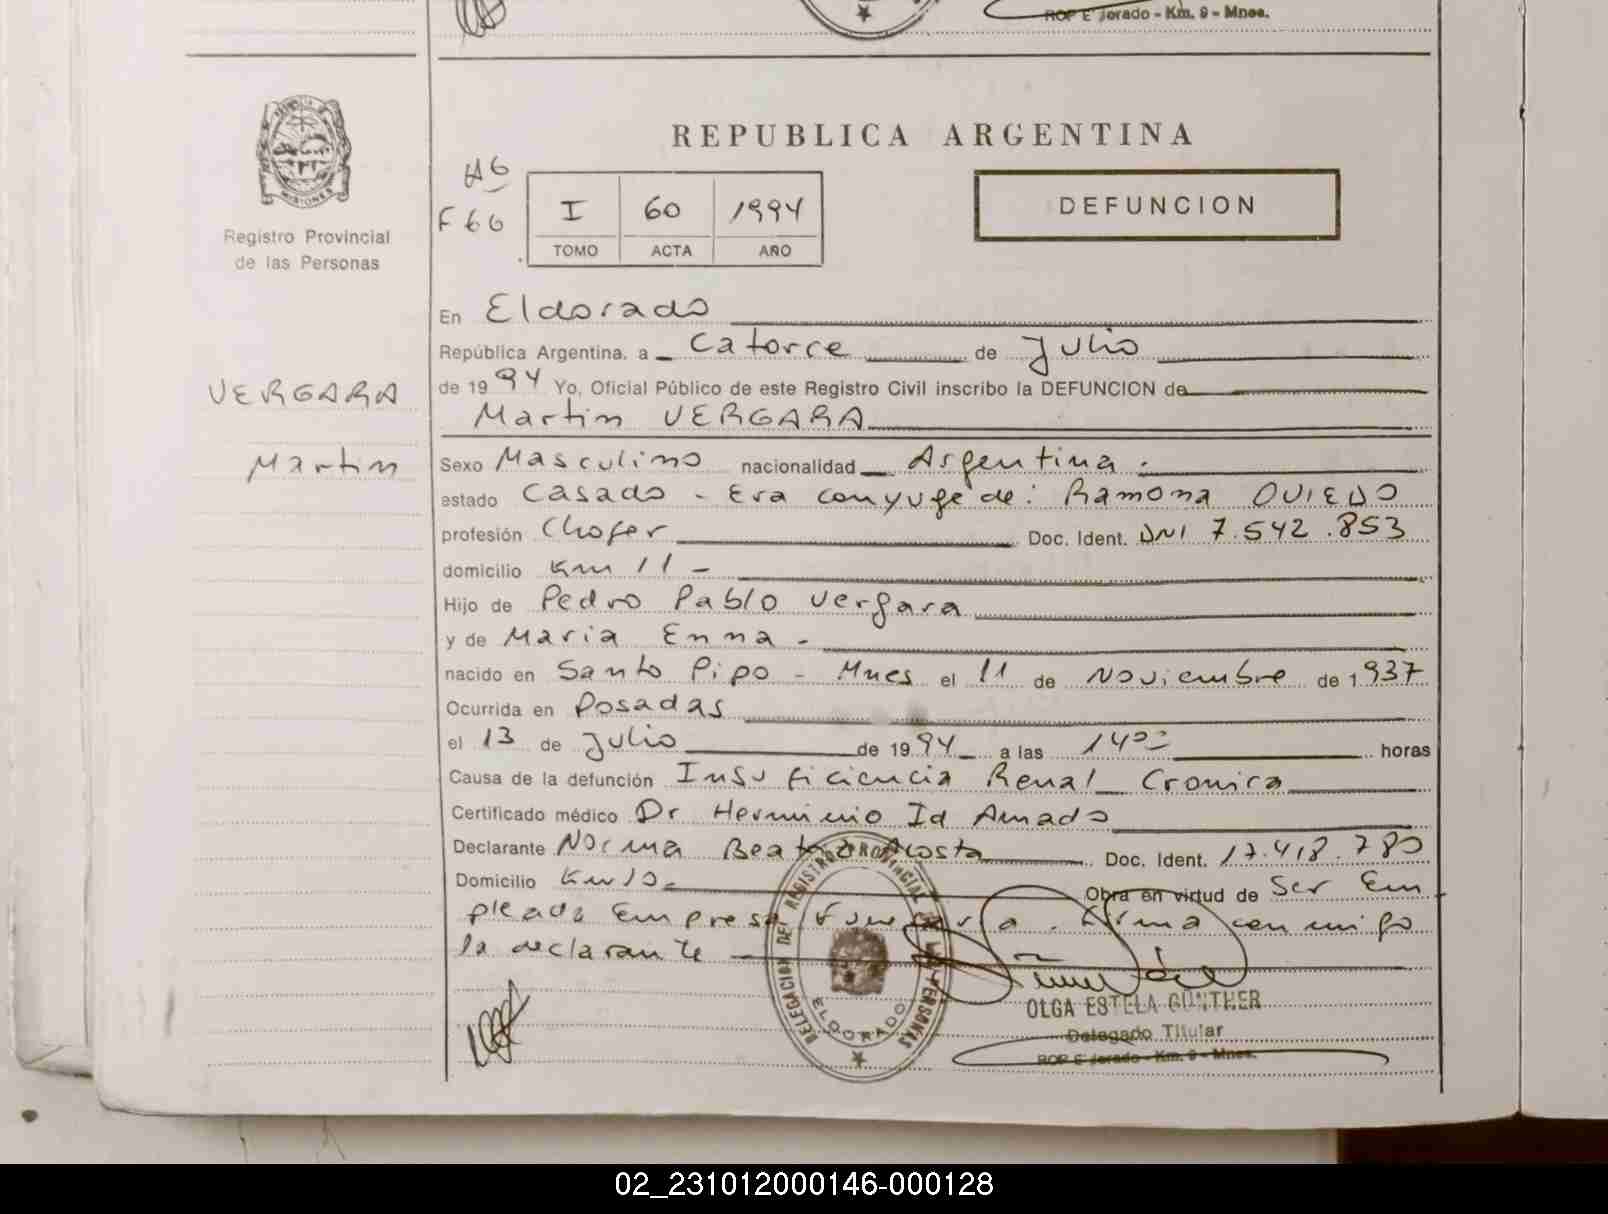 ROP E jorado - Km. 9 - Mnes.
MISIONES
Registro Provincial
de las Personas
REPUBLICA ARGENTINA
F 66
I 60 1994
TOMO ACTA AÑO
DEFUNCION
VERGARA
Martin
En Eldorado
República Argentina, a Catorce de Julio
de 1994 Yo, Oficial Público de este Registro Civil inscribo la DEFUNCION de
Martin VERGARA
Sexo Masculino nacionalidad Argentina.
estado Casado - Era conyuge de: Ramona OVIEDO
profesión Chofer Doc. Ident. DNI 7.542.853
domicilio Km 11 -
Hijo de Pedro Pablo Vergara
y de Maria Enna -
nacido en Santo Pipo - Mnes el 11 de Noviembre de 1.937
Ocurrida en Posadas
el 13 de Julio de 1994 a las 1400 horas
Causa de la defunción Insuficiencia Renal Cronica
Certificado médico Dr Herminio Id Amado
Declarante Norma Beatriz Acosta Doc. Ident. 17.418.780
Domicilio Km 10 - Obra en virtud de Ser Em
pleada Empresa Funeraria. Firma conmigo
la declarante
DELEGACION DEL REGISTRO PROVINCIAL DE LAS PERSONAS
ELDORADO
OLGA ESTELA GUNTHER
Delegado Titular
ROP E jorado - Km. 9 - Mnes.
02_231012000146-000128